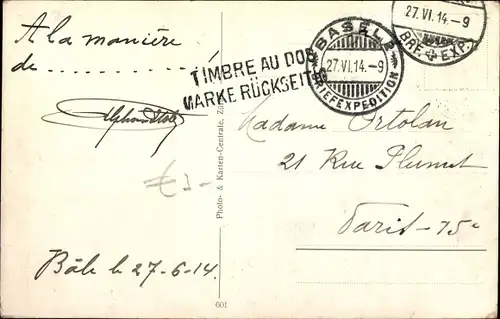 A la manière
de ..........
Bâle le 27-6-14
TIMBRE AU DOS
MARKE RÜCKSEITE
BASEL 2
27.VI.14.-9
BRIEFEXPEDITION
27.VI.14-9
BRF. EXP.
Photo- & Karten-Centrale, Zür
601
Madame Ortolan
21 Rue Plumet
Paris-15e
€3-